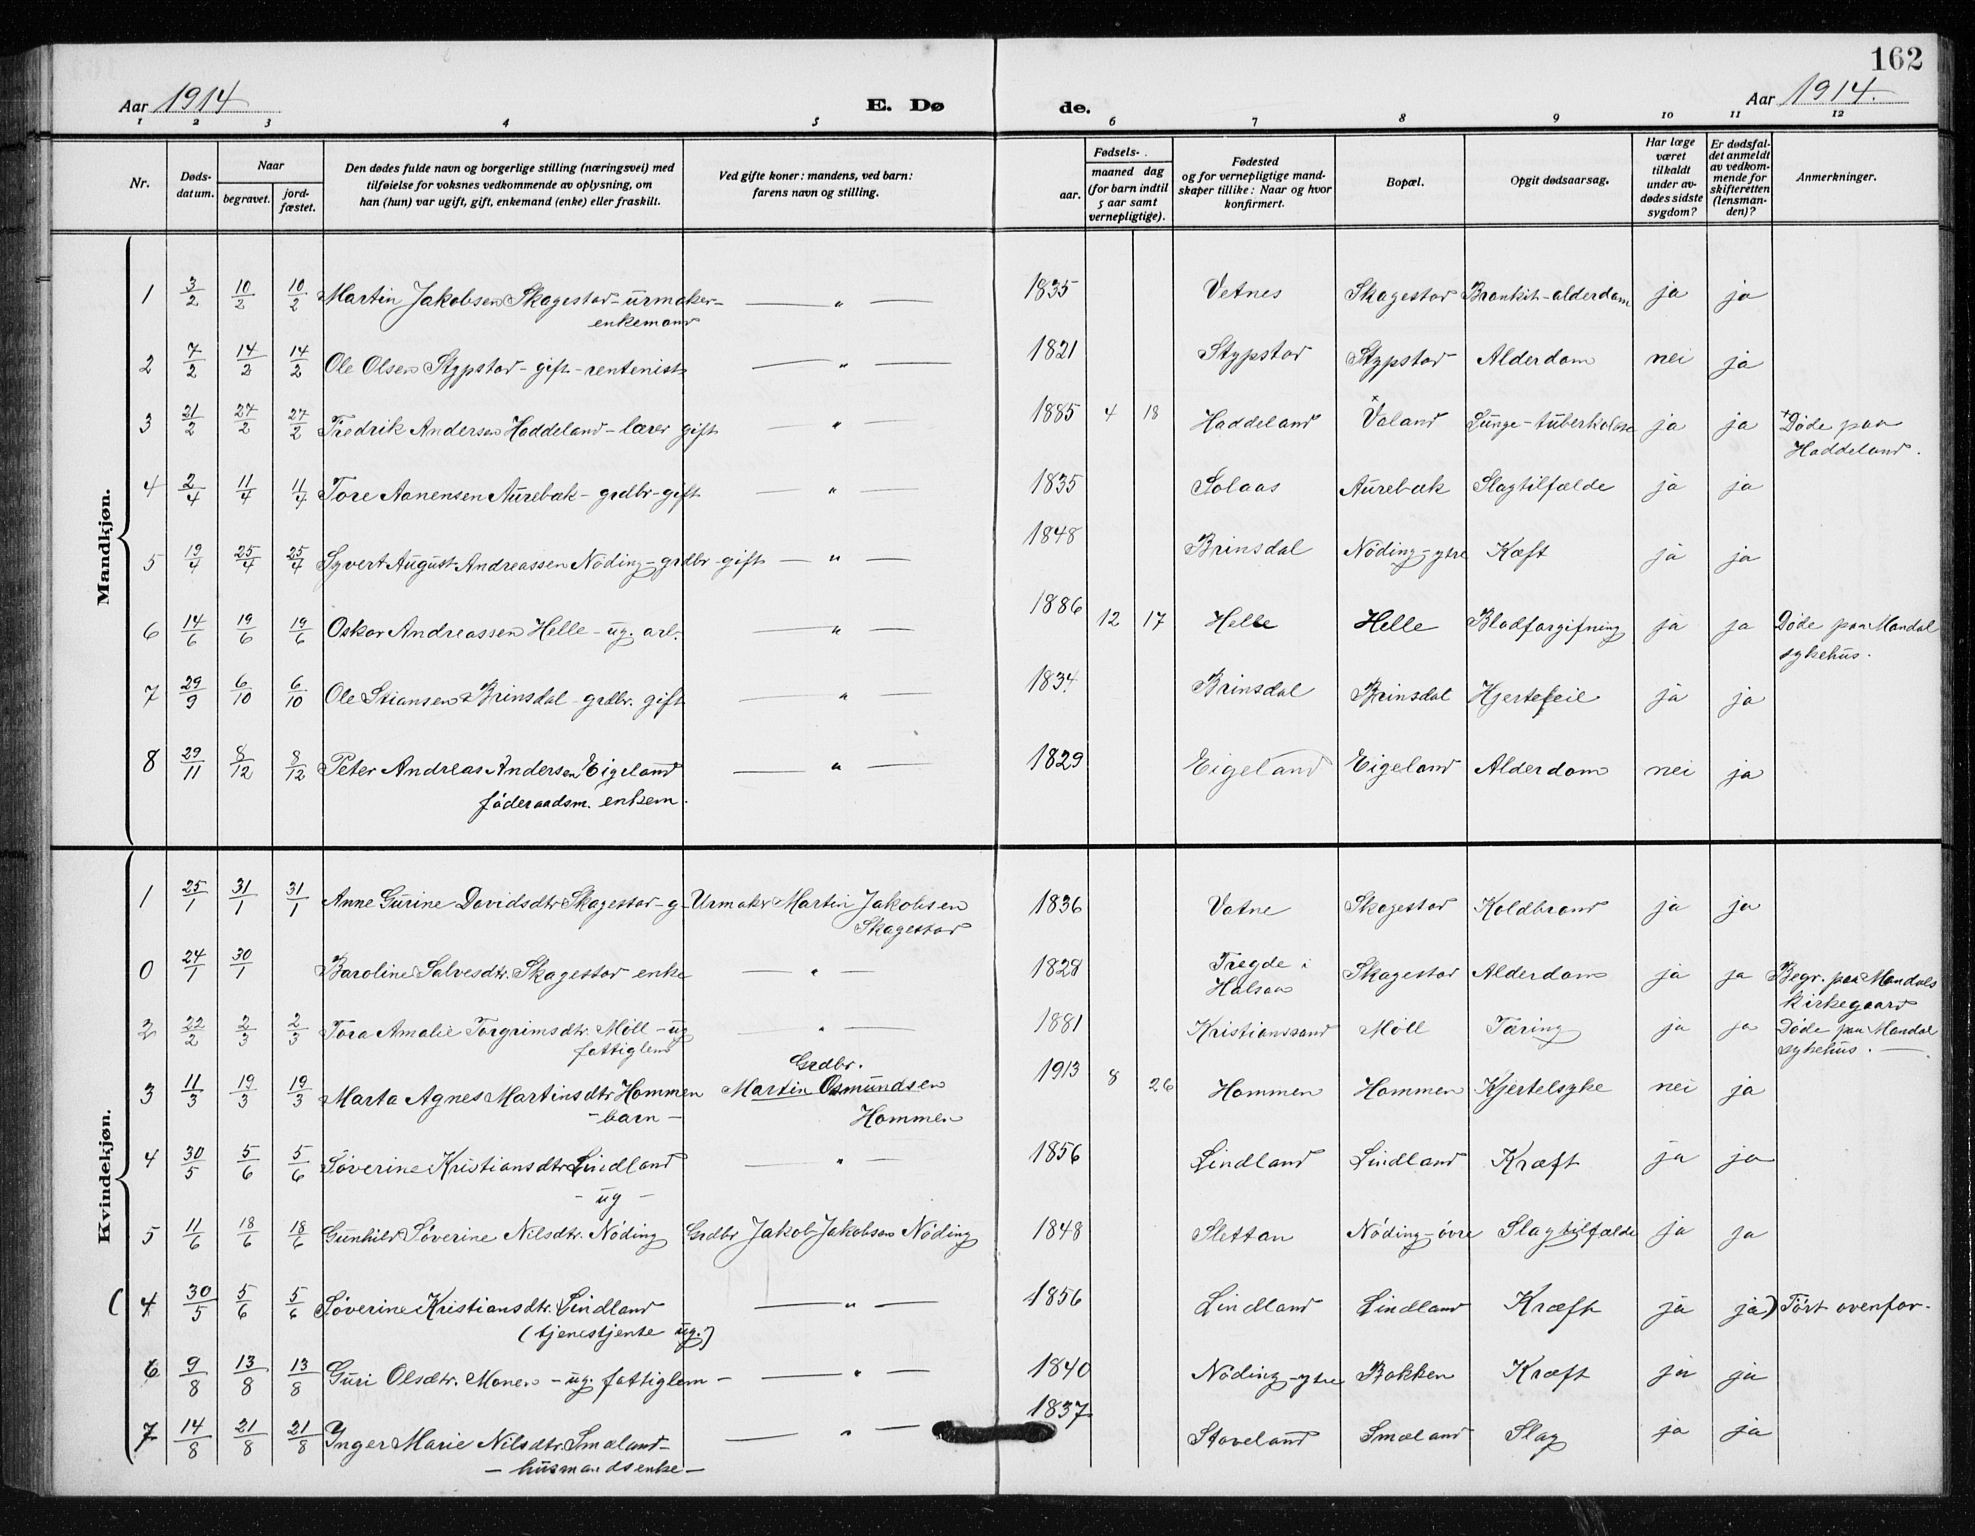 162
Aar 1914 E. Dø de. Aar 1914.
1 2 3 4 5 6 7 8 9 10 11 12
Nr. Døds-datum. Naar begravet. jord-fæstet. Den dødes fulde navn og borgerlige stilling (næringsvei) med tilføielse for voksnes vedkommende av oplysning, om han (hun) var ugift, gift, enkemand (enke) eller fraskilt. Ved gifte koner: mandens, ved barn: farens navn og stilling. Fødsels- aar. maaned dag (for barn indtil 5 aar samt vernepligtige). Fødested og for vernepligtige mand-skaper tillike: Naar og hvor konfirmert. Bopæl. Opgit dødsaarsag. Har læge været tilkaldt under av-dødes sidste sygdom? Er dødsfal-det anmeldt av vedkom-mende for skifteretten (lensman-den)? Anmerkninger.
Mandkjøn.
1 3/2 10/2 10/2 Martin Jakobsen Skagestad - urmaker - — " — 1835 Vetnes Skagestad Bronkit - alderdom ja ja
enkemand
2 7/2 14/2 14/2 Ole Olsen Stypstad - gift - rentenist — " — 1821 Stypstad Stypstad Alderdom nei ja
3 21/2 27/2 27/2 Fredrik Andersen Haddeland - lærer gift — " — 1885 4 18 Haddeland × Valand Lunge-tuberkulose ja ja × Døde paa
Haddeland.
4 2/4 11/4 11/4 Tore Aanensen Aurebæk - grdbr - gift — " — 1835 Solaas Aurebæk Slagtilfælde ja ja
5 19/4 25/4 25/4 Syvert August Andreassen Nøding - grdbr - gift — " — 1848 Brinsdal Nøding - ytre Kæft ja ja
6 14/6 19/6 19/6 Oskar Andreassen Helle - ug. arb. — " — 1886 12 17 Helle Helle Blodforgifning ja ja Døde paa Mandal
sykehus.
7 29/9 6/10 6/10 Ole Stiansen Brinsdal - grdbr. gift — " — 1834 Brinsdal Brinsdal Hjertefeil ja ja
8 29/11 8/12 8/12 Peter Andreas Andersen Eigeland — " — 1829 Eigeland Eigeland Alderdom nei ja
føderaadsm. enkem.
Kvindekjøn.
1 25/1 31/1 31/1 Anne Gurine Davidsdtr Skagestad - g - Urmaker Martin Jakobsen 1836 Vatne Skagestad Koldbrand ja ja
Skagestad
0 24/1 30/1 Baroline Salvesdtr. Skagestad enke — " — 1828 Tregde i Skagestad Alderdom ja ja Begr. paa Mandals
Halsaa kirkegaard
2 22/2 2/3 2/3 Tora Amalie Torgrimsdtr. Møll - ug — " — 1881 Kristianssand Møll Tæring ja ja Døde paa Mandal
fattiglem sykehus. —
3 11/3 19/3 19/3 Marta Agnes Martinsdtr Hommen Grdbr. Martin Osmundsen 1913 8 26 Hommen Hommen Kjertelsyke nei ja
- barn - Hommen
4 30/5 5/6 5/6 Søverine Kristiansdtr Lindland — " — 1856 Lindland Lindland Kræft ja ja
- ug -
5 11/6 18/6 18/6 Gunhild Søverine Nilsdtr. Nøding Grdbr Jakob Jakobsen Nøding 1848 Slettan Nøding - øvre Slagtilfælde ja ja
( 4 30/5 5/6 5/6 Søverine Kristiansdtr. Lindland — " — 1856 Lindland Lindland Kræft ja ja ) Ført ovenfor.
(tjenestjente ug.)
6 9/8 13/8 13/8 Guri Olsdtr. Monen - ug. fattiglem - — " — 1840 Nøding - ytre Bakken Kræft ja ja
7 14/8 21/8 21/8 Ynger Marie Nilsdtr Smæland - — " — 1837 Staveland Smæland Slag ja ja
- husmandsenke -